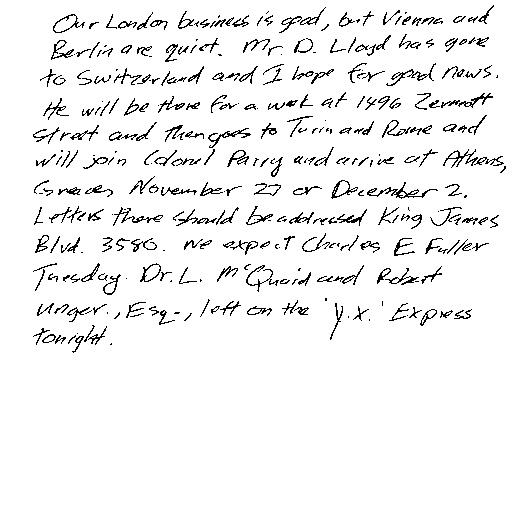 Our London business is good, but Vienna and
Berlin are quiet. Mr. D. Lloyd has gone
to Switzerland and I hope for good news.
He will be there for a week at 1496 Zermott
Street and then goes to Turin and Rome and
will join Colonel Parry and arrive at Athens,
Greece, November 27 or December 2.
Letters there should be addressed King James
Blvd. 3580. We expect Charles E. Fuller
Tuesday. Dr. L. McQuaid and Robert
Unger., Esq., left on the 'Y.X.' Express
tonight.